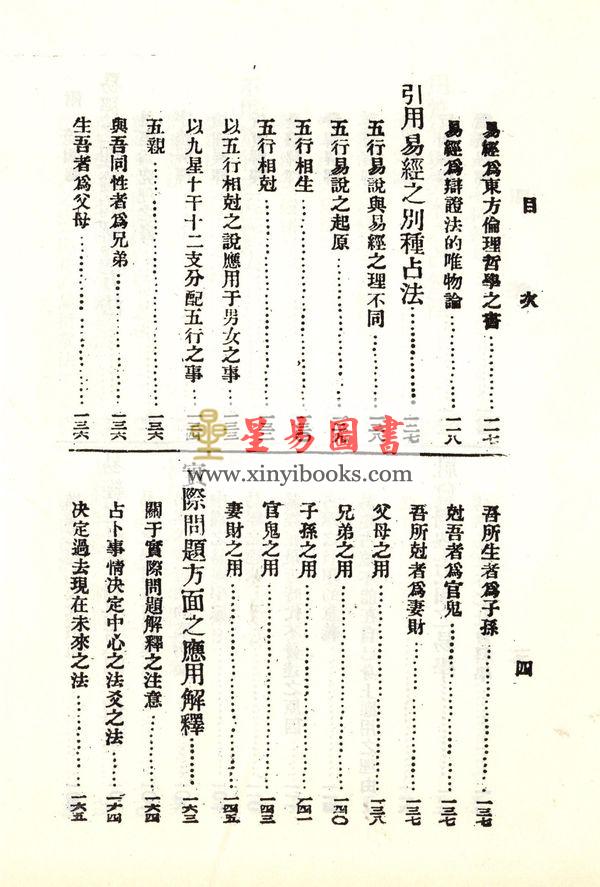 目次
四
易經爲東方倫理哲學之書…………一一七
易經爲辯證法的唯物論…………一一八
引用易經之別種占法…………
五行易說與易經之理不同…………
五行易說之起原…………
五行相生…………
五行相尅…………
以五行相尅之說應用于男女之事…………
以九星十干十二支分配五行之事…………
五親…………一三六
與吾同性者爲兄弟…………一三六
生吾者爲父母…………一三六
吾所生者爲子孫…………一三七
尅吾者爲官鬼…………一三七
吾所尅者爲妻財…………一三七
父母之用…………一三八
兄弟之用…………一四〇
子孫之用…………一四一
官鬼之用…………一四三
妻財之用…………一四五
實際問題方面之應用解釋…………一六三
關于實際問題解釋之注意…………一六四
占卜事情決定中心之法爻之法…………一六四
決定過去現在未來之法…………一六五
星易圖書
www.xinyibooks.com